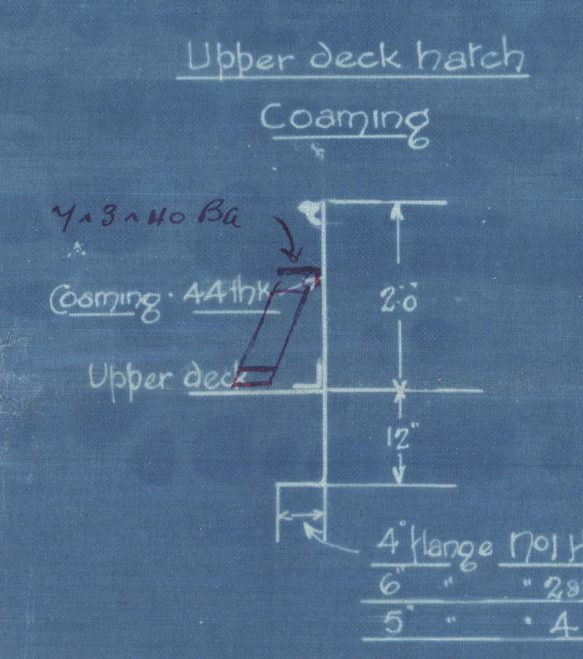 Upper deck hatch
Coaming
7 × 3 × 40 BA
Coaming · 44 thk
2'.0"
Upper deck
12"
4" flange No1
6" " " 2
5" " " 4